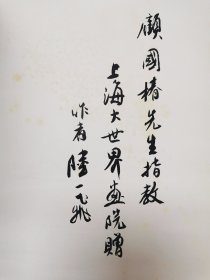 顧國椿先生指教
上海大世界画院贈
作者陸一飛